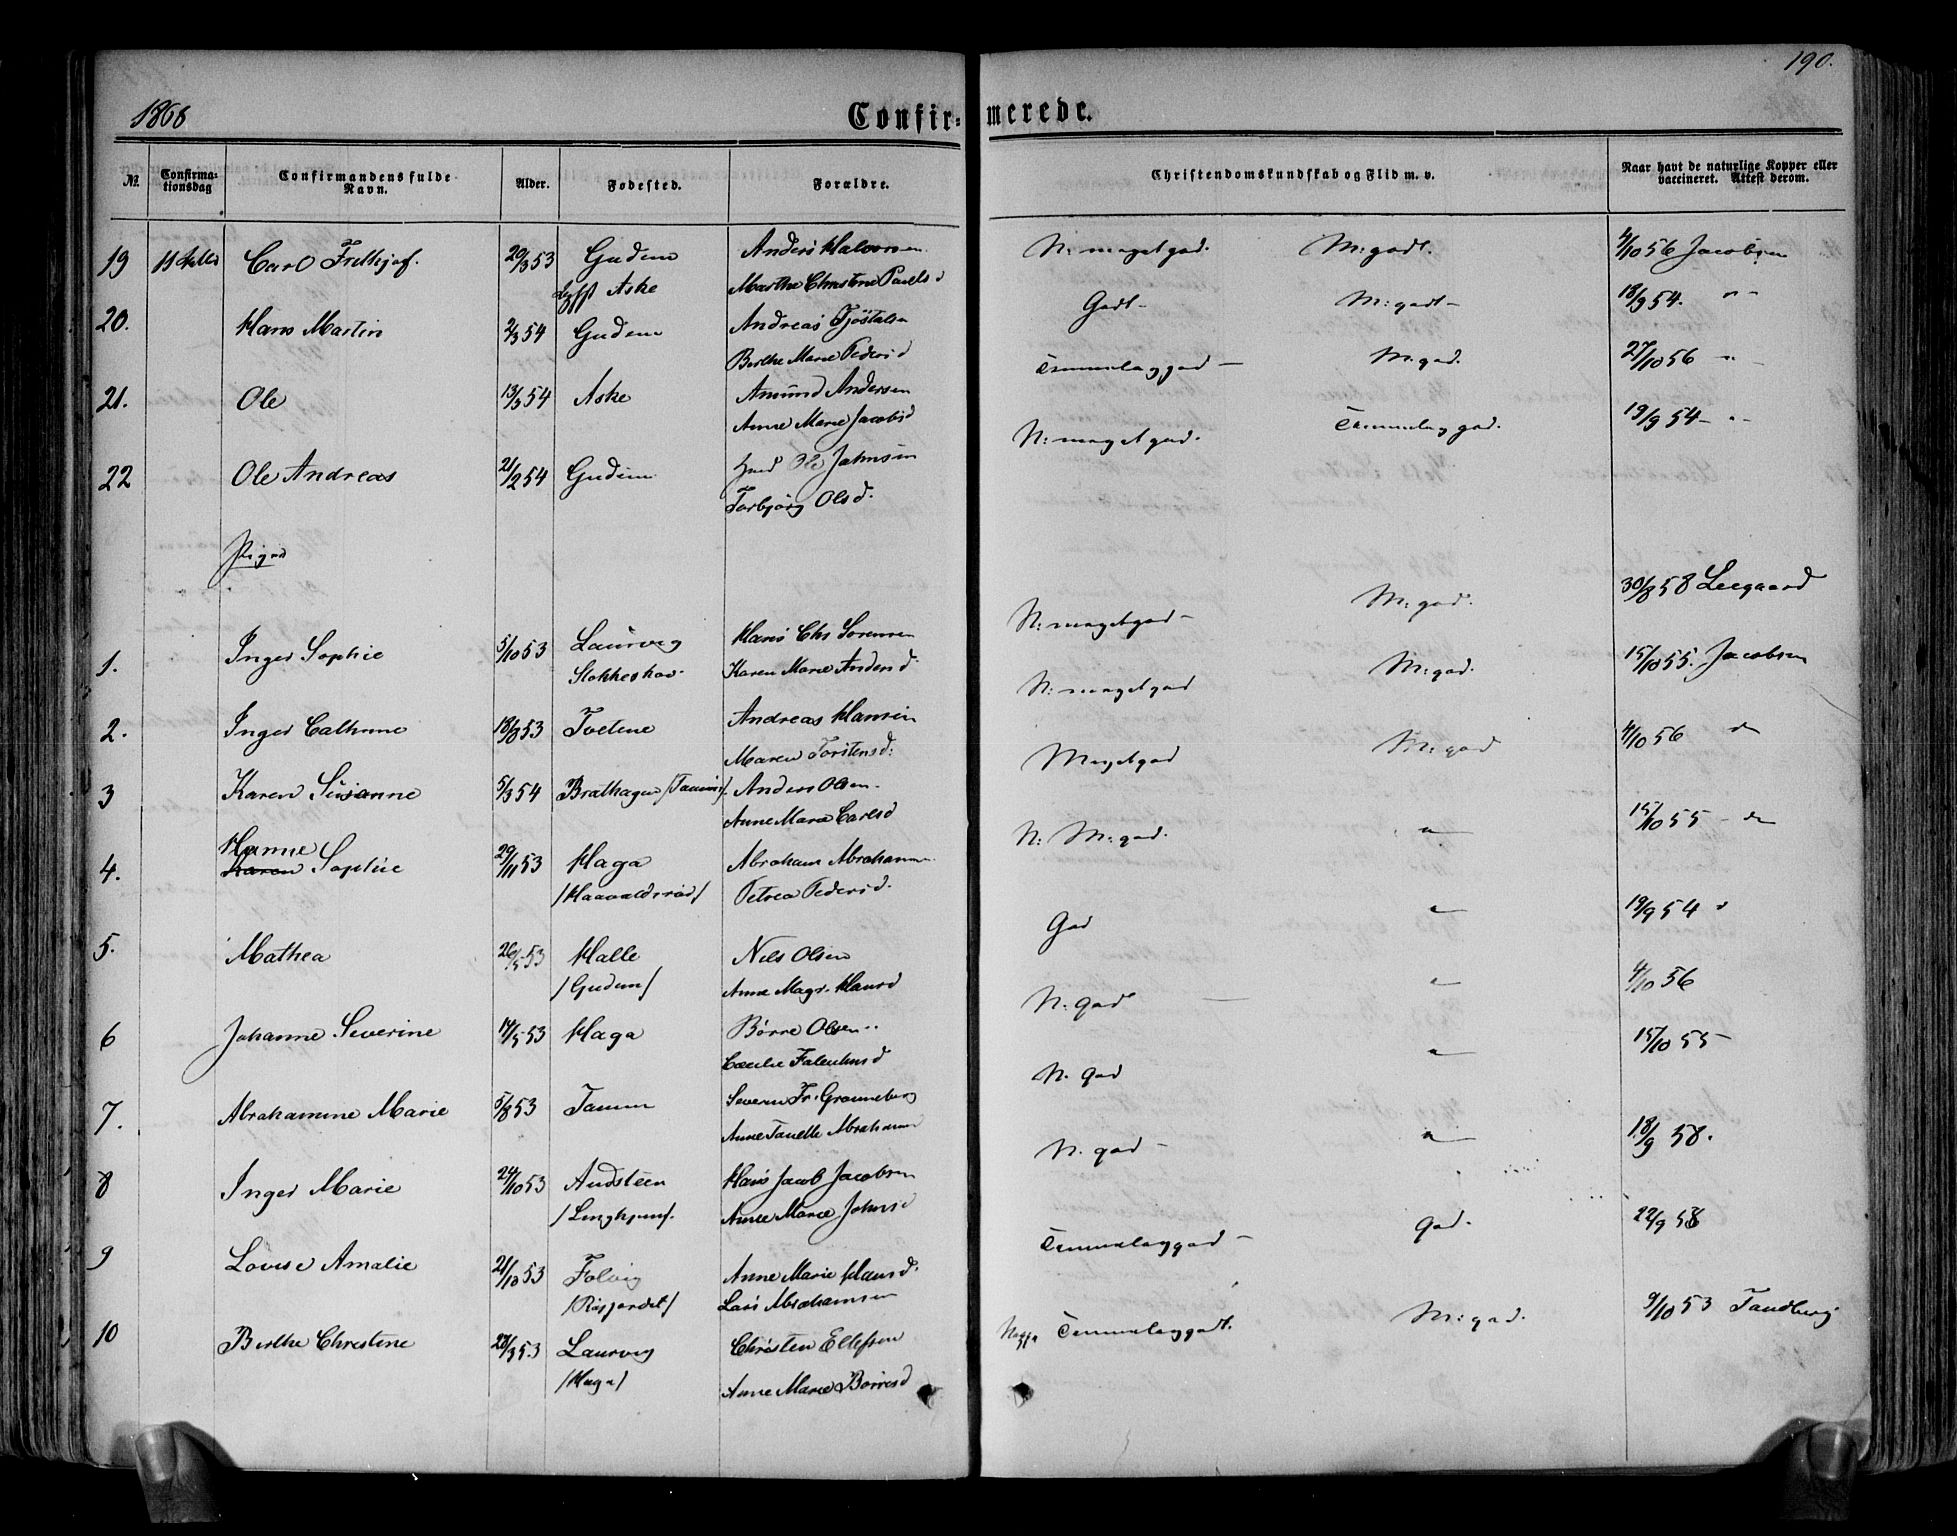 190.
1868
Confir- merede.
No. Confirmationsdag Confirmandens fulde Navn. Alder. Fødested. Forældre. Christendomskundskab og Flid m. v. Naar havt de naturlige Kopper eller vaccineret. Attest derom.
19 Carl Frithjof. 29/3 53 Gudem Anders Halvorsen N: megetgod. M: godt. 4/10 56 Jacobsen
Aske Marthe Christine Paulsd
20. Hans Martin 2/3 54 Gudem Andreas Godt- M: godt- 18/9 54. " -
Berthe Marie Pedersd
21. Ole 13/3 54 Aske Amund Andersen Temmelaggod - M: god. 27/10 56 "
Anne Marie Jacobsd
22 Ole Andreas 21/2 54 Gudem Ole Johnsen N: megetgod. Temmelaggod. 19/9 54 - "
Torbjørg Olsd.
Piger
1. Inger Sophie 5/10 53 Laurvig Hans Chr Sørensen N: megetgod - M: god. 30/8 58 Leegaard
Stokkeskov Karen Marie Andersd
2. Inger Cathrine 18/8 53 Tvetene Andreas Hansen N: megetgod M: god. 15/10 55. Jacobsen
Maren Torstensd:
3 Karen Susanne 5/3 54 Brathagen /Tamm/. Anders Olsen. Megetgod M: god 4/10 56 do
Anne Marie Carlsd
4. Hanne Karen Sophie 29/11 53 Haga Abraham Abrahamsen N: M: god. " 15/10 55 - do
/Haavaldsrød/ Petrea Pedersd.
5. Mathea 26/5 53 Halle Nils Olsen God " 19/9 54
/Gudem/ Anne Magr. Hansd
6 Johanne Severine 14/5 53 Haga Børre Olsen N: god " 4/10 56
Cecilie Falentinsd
7. Abrahamine Marie 5/8 53 Tamm Severin Fr. Granneberg N. god " 15/10 55 -
Anne Tanelle Abrahams
8 Inger Marie 24/10 53 Andsteen Hans Jacob Jacobsen N. god - " 18/9 58.
/Linghjem/. Anne Marie Johnsd
9 Lovise Amalie 21/10 53 Folvig Anne Marie Hansd. Temmelaggod - God. 22/9 58
Lars Abrahamsen
10 Berthe Christine 28/3 53 Laurvig Christen Ellefsen Neppe Temmelaggodt. M: god. 9/10 53 Tandberg
/Haga/ Anne Marie Børresd